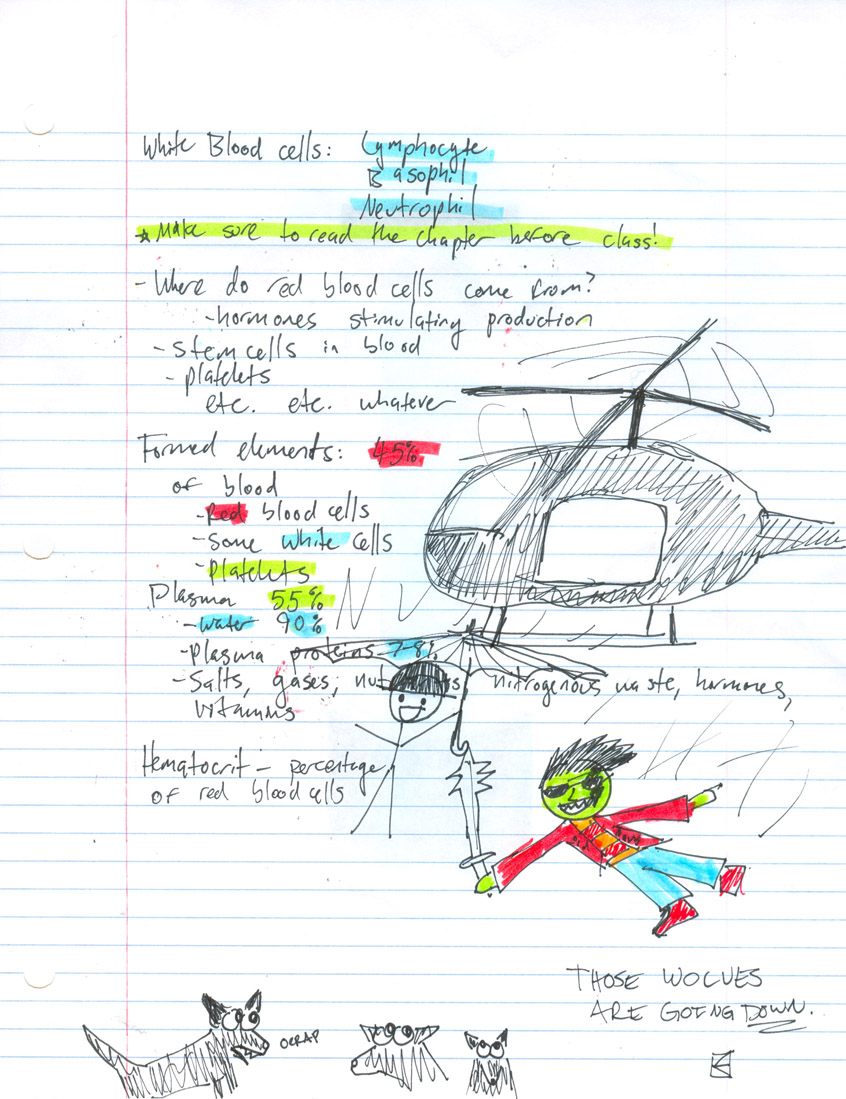 White Blood cells: Lymphocyte
Basophil
Neutrophil
☆ Make sure to read the chapter before class!
- Where do red blood cells come from?
- hormones stimulating production
- stem cells in blood
- platelets
etc. etc. whatever
Formed elements: 45%
of blood
- Red blood cells
- Some white cells
- Platelets
Plasma 55%
- water 90%
- Plasma proteins 7-8%
- Salts, gases, nutrients, nitrogenous waste, hormones,
vitamins
Hematocrit - percentage
of red blood cells
THOSE WOLVES
ARE GOING DOWN.
OCRAP